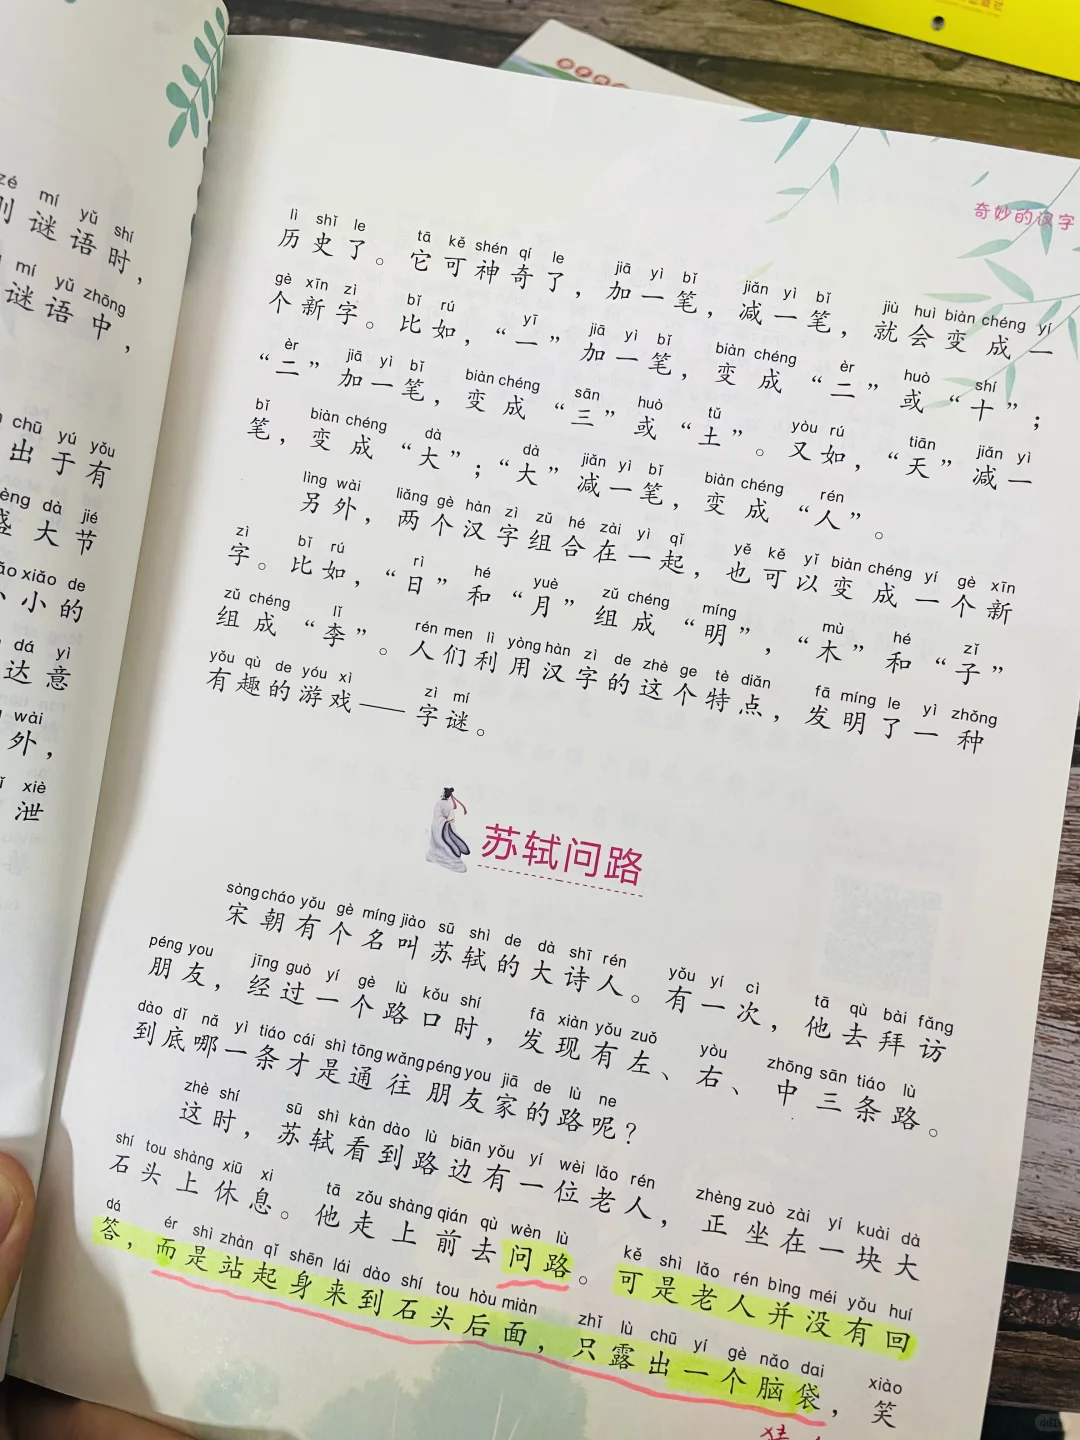 奇妙的汉字
zé mí yǔ shí
则谜语时，
mí yǔ zhōng
谜语中，
chū yú yǒu
出于有
dà jié
盛大节
xiǎo de
小小的
dá yì
达意
wài
外，
xiè
泄
lì shǐ le tā kě shén qí le jiā yì bǐ jiǎn yì bǐ jiù huì biàn chéng yí
历史了。它可神奇了，加一笔，减一笔，就会变成一
gè xīn zì bǐ rú yī jiā yì bǐ biàn chéng èr huò shí
个新字。比如，“一”加一笔，变成“二”或“十”；
èr jiā yì bǐ biàn chéng sān huò tǔ yòu rú tiān jiǎn yì
“二”加一笔，变成“三”或“土”。又如，“天”减一
bǐ biàn chéng dà dà jiǎn yì bǐ biàn chéng rén
笔，变成“大”；“大”减一笔，变成“人”。
lìng wài liǎng gè hàn zì zǔ hé zài yì qǐ yě kě yǐ biàn chéng yí gè xīn
另外，两个汉字组合在一起，也可以变成一个新
zì bǐ rú rì hé yuè zǔ chéng míng mù hé zǐ
字。比如，“日”和“月”组成“明”，“木”和“子”
zǔ chéng lǐ rén men lì yòng hàn zì de zhè ge tè diǎn fā míng le yì zhǒng
组成“李”。人们利用汉字的这个特点，发明了一种
yǒu qù de yóu xì zì mí
有趣的游戏——字谜。
苏轼问路
sòng cháo yǒu gè míng jiào sū shì de dà shī rén yǒu yí cì tā qù bài fǎng
宋朝有个名叫苏轼的大诗人。有一次，他去拜访
péng you jīng guò yí gè lù kǒu shí fā xiàn yǒu zuǒ yòu zhōng sān tiáo lù
朋友，经过一个路口时，发现有左、右、中三条路。
dào dǐ nǎ yì tiáo cái shì tōng wǎng péng you jiā de lù ne
到底哪一条才是通往朋友家的路呢？
zhè shí sū shì kàn dào lù biān yǒu yí wèi lǎo rén zhèng zuò zài yí kuài dà
这时，苏轼看到路边有一位老人，正坐在一块大
shí tou shàng xiū xi tā zǒu shàng qián qù wèn lù kě shì lǎo rén bìng méi yǒu huí
石头上休息。他走上前去问路。可是老人并没有回
dá ér shì zhàn qǐ shēn lái dào shí tou hòu miàn zhǐ lù chū yí gè nǎo dai xiào
答，而是站起身来到石头后面，只露出一个脑袋，笑